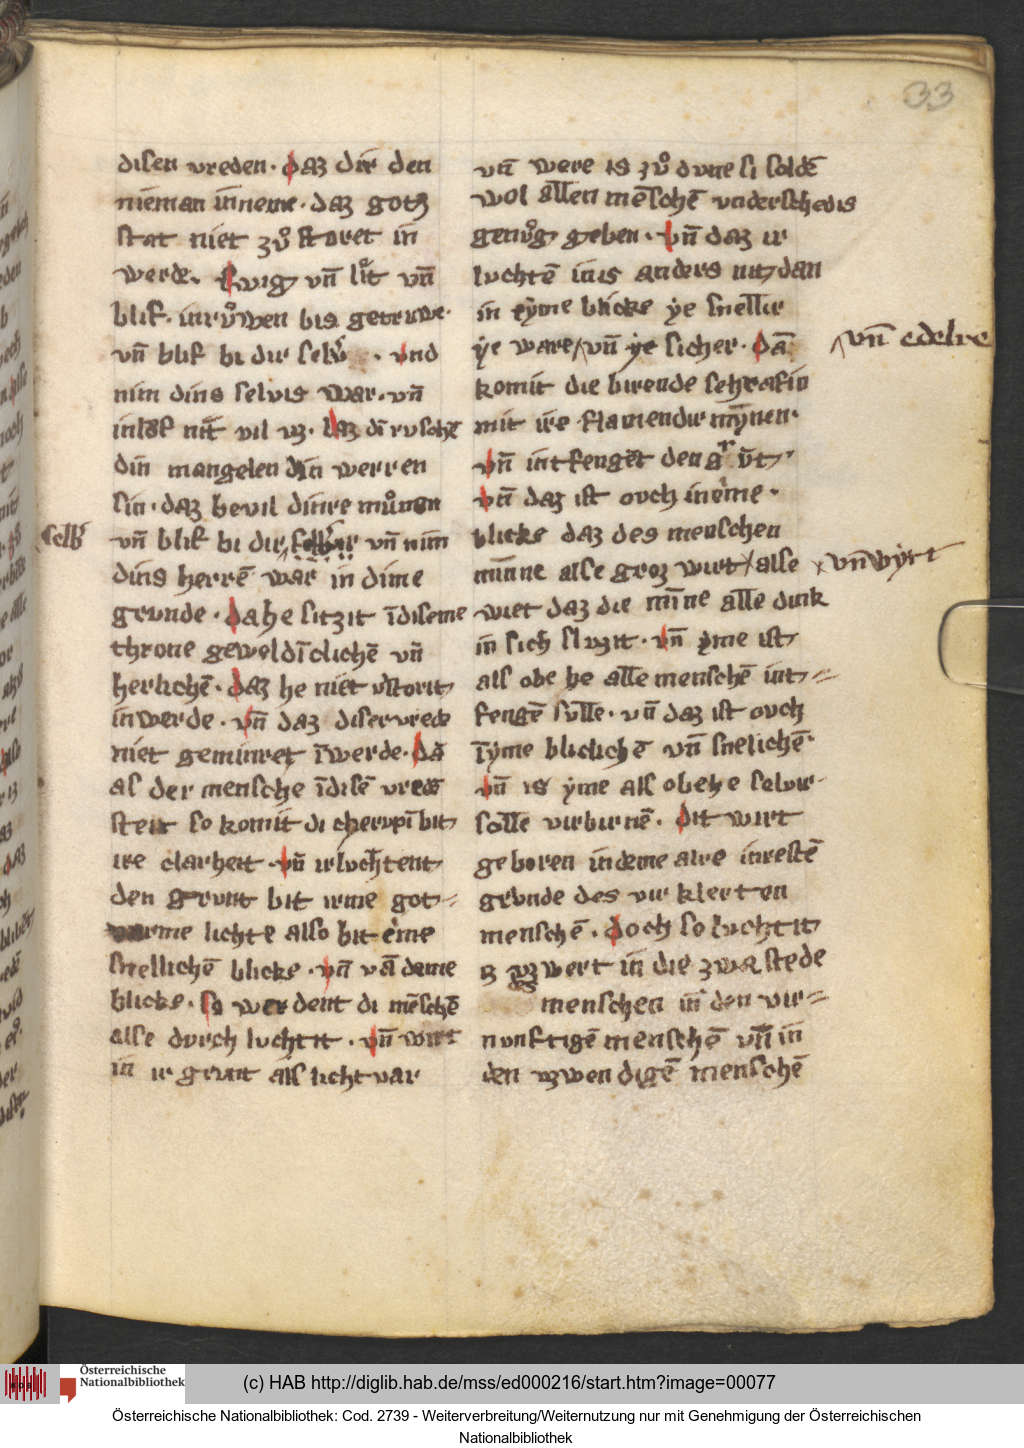 33
disen vreden · daz dir den
nieman inneme · daz gotz
stat niet zuͦ storet in
werde. Swig vn̄ lit vn̄
blif · in ruͦwen bis getruwe ·
vn̄ blif bi dir selv̄ · vnd
nim dins selvis war · vn̄
inlos nit vil vz · daz di ruschē
din mangelen din werren
sin · daz bevil dinre muͦmen
vn̄ blif bi dir vn̄ nim
selbs
dins herrē war in dime
grunde · da he sitzit ī diseme
throne geweldīclichē vn̄
herlichē · daz he niet vstorit
in werde · vn̄ daz diser vrede
niet geminret ī werde · dā
as der mensche ī disē vrede
steit so komit di cherupī bit
ire clarheit · vn̄ irluchtent
den grunt bit irme got=
varme lichte also bit eime
snellichē blicke · vn̄ vā deme
blicke · so werdent di mēschē
alse durch luchtit · vn̄ wirt
in ir grunt als licht var
vn̄ were is zuͦ dune si soldē
wol allen mēschē vnderschedis
genuͦg geben · vn̄ daz ir
luchtē inis anders nit dan
in eyme blicke ye sneller
ye ware vn̄ ye sicher · dā
vn̄ edelre
komit die birende serafin
mit ire flamender mynen ·
vn̄ intfenget den grūt
vn̄ daz ist ouch in eime ·
blicke daz des menschen
minne alse groz wirt alse
vn̄ wyrt
wiet daz die minne alle dink
in sich sluzit · vn̄ yme ist
als obe he alle menschē int=
fengē sulle · vn̄ daz ist ouch
ī yme blicklichē vn̄ snelichē ·
vn̄ is yme als obe he selvir
solle virbirnē · dit wirt
geboren in deme alre inrestē
grunde des vir klerten
menschē · doch so luchtit
iz vzwert in die zwa stede
menschen in den vir=
nunftigē menschē vn̄ in
den vzwendigē menschē
(c) HAB http://diglib.hab.de/mss/ed000216/start.htm?image=00077
Österreichische
Nationalbibliothek
Österreichische Nationalbibliothek: Cod. 2739 - Weiterverbreitung/Weiternutzung nur mit Genehmigung der Österreichischen
Nationalbibliothek